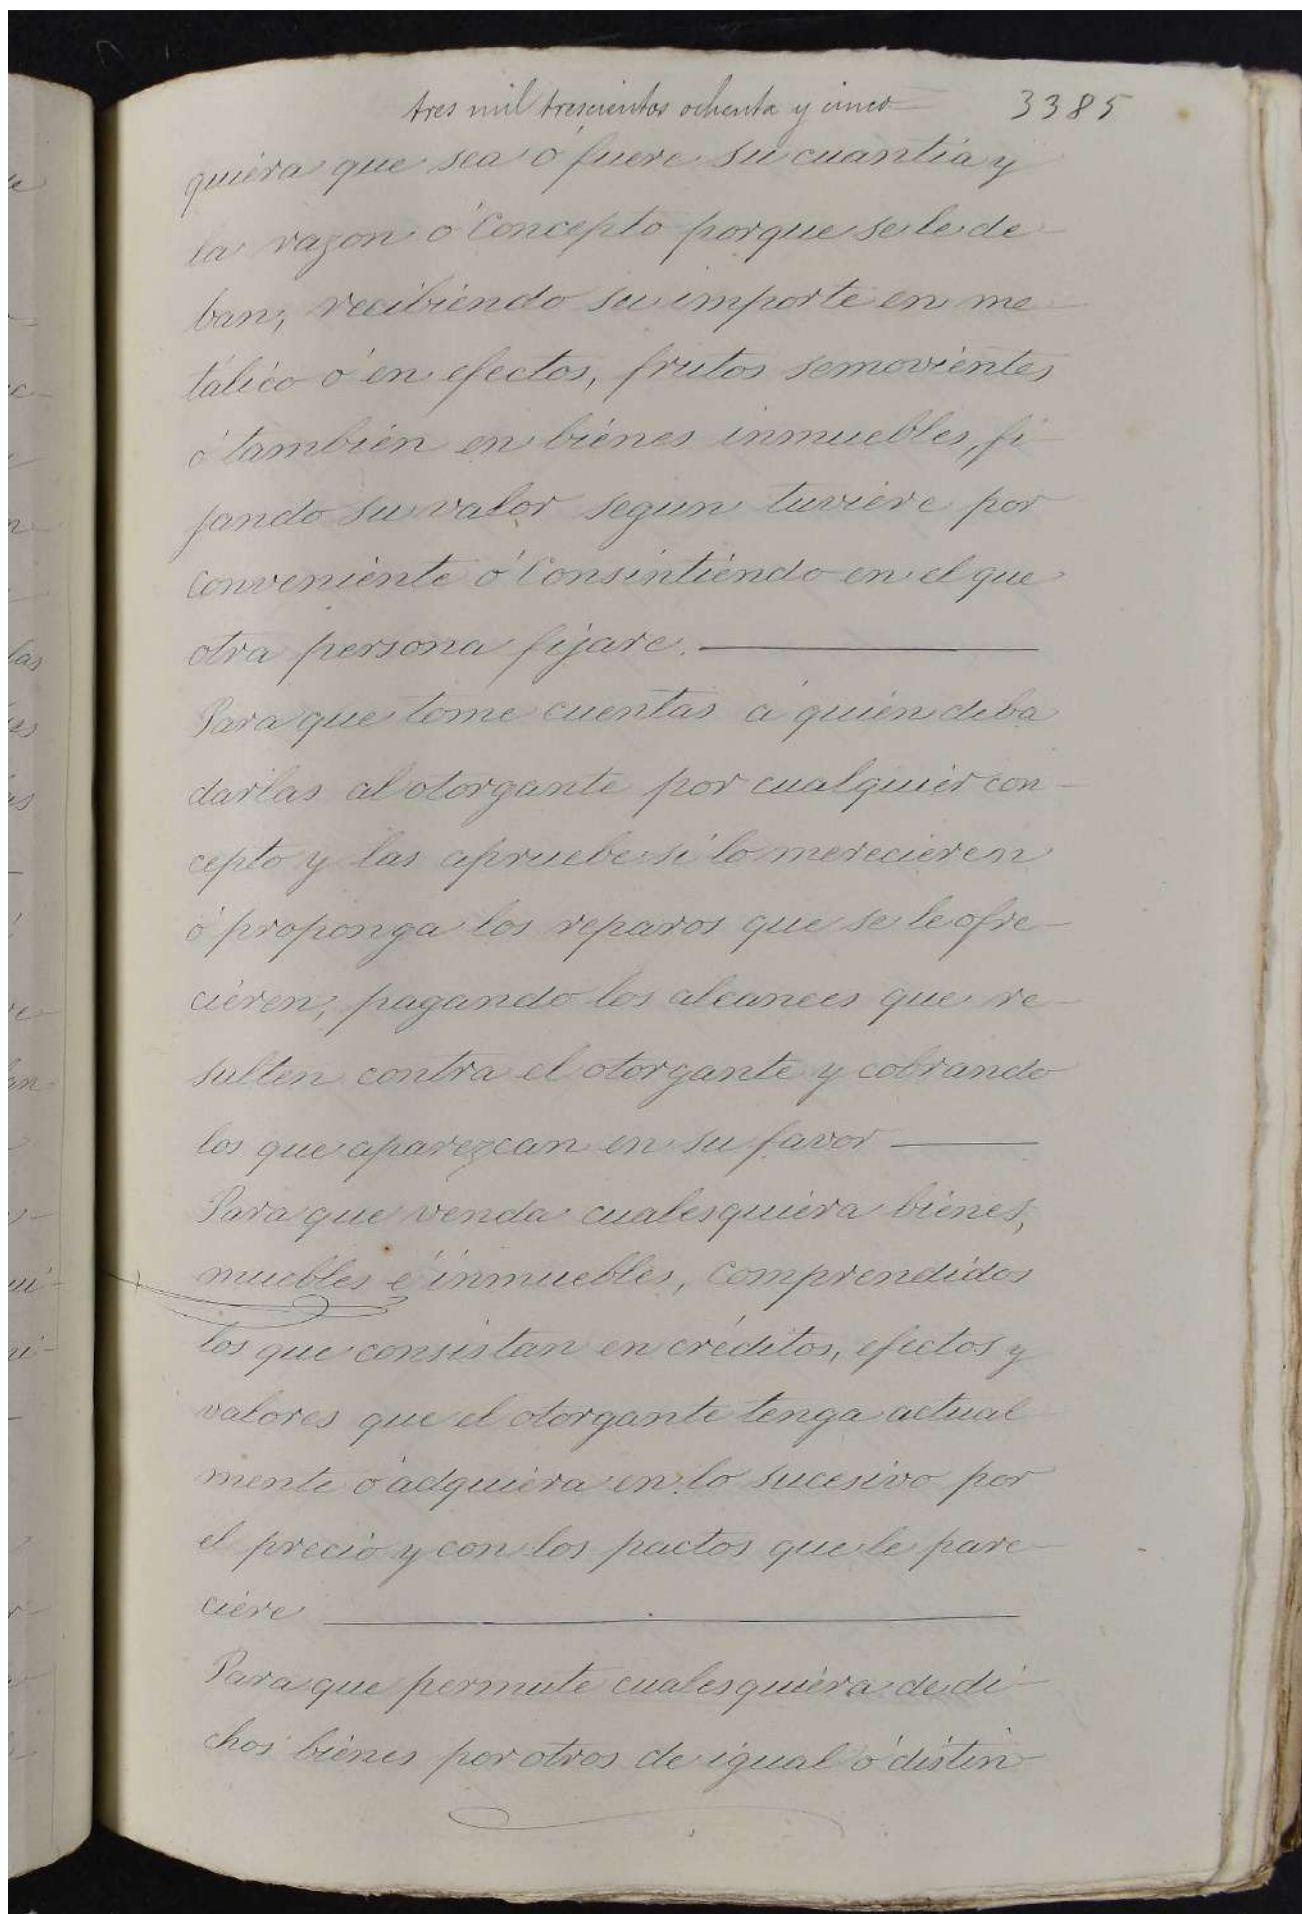 tres mil trescientos ochenta y cinco 3385
quiera que sea ó fuere su cuantía y
la razon ó Concepto porque se le de-
ban; recibiendo su importe en me-
tálico ó en efectos, frutos semovientes
ó también en biénes inmuebles, fi-
jando su valor segun tuviére por
conveniénte ó Consintiéndo en el que
otra persona fijare.
Para que tome cuentas á quién deba
darlas al otorgante por cualquiér con-
cepto y las apruebe si lo merecieren
ó proponga los reparos que se le ofre-
ciéren; pagando los alcances que re-
sulten contra el otorgante y cobrando
los que aparezcan en su favor
Para que venda cualesquiéra biénes,
muebles é inmuebles, comprendidos
los que consistan en créditos, efectos y
valores que el otorgante tenga actual
mente ó adquiéra en lo sucesivo por
el precio y con los pactos que le pare-
ciére
Para que permute cualesquiéra de di-
chos biénes por otros de igual ó distin-